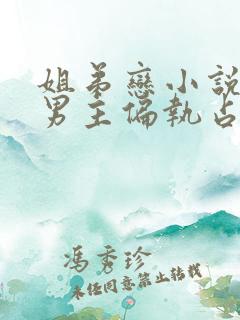 姐弟戀小說
男主偏執占
馮秀珍
未經同意禁止轉載